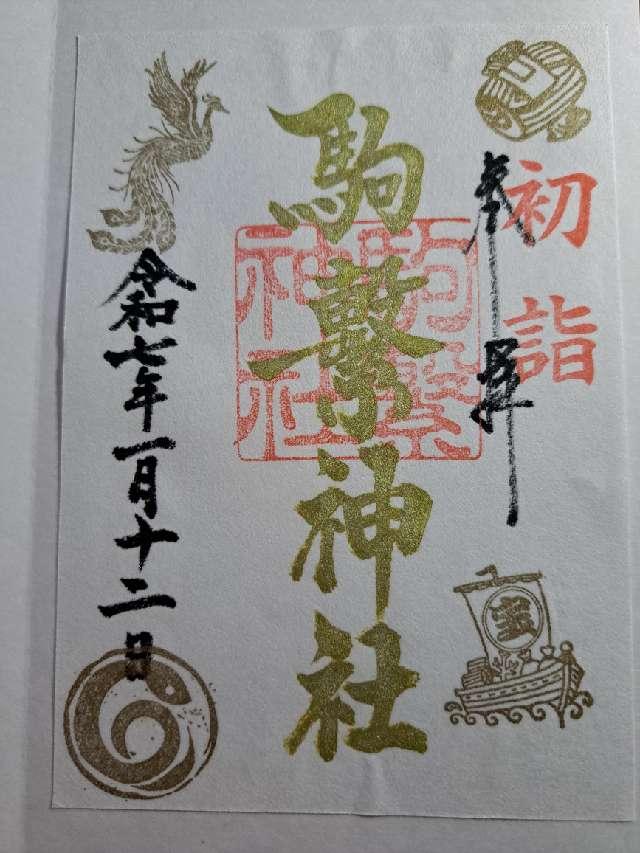 初詣
奉拝
駒繋神社
駒繋
神社
令和七年一月十二日
宝